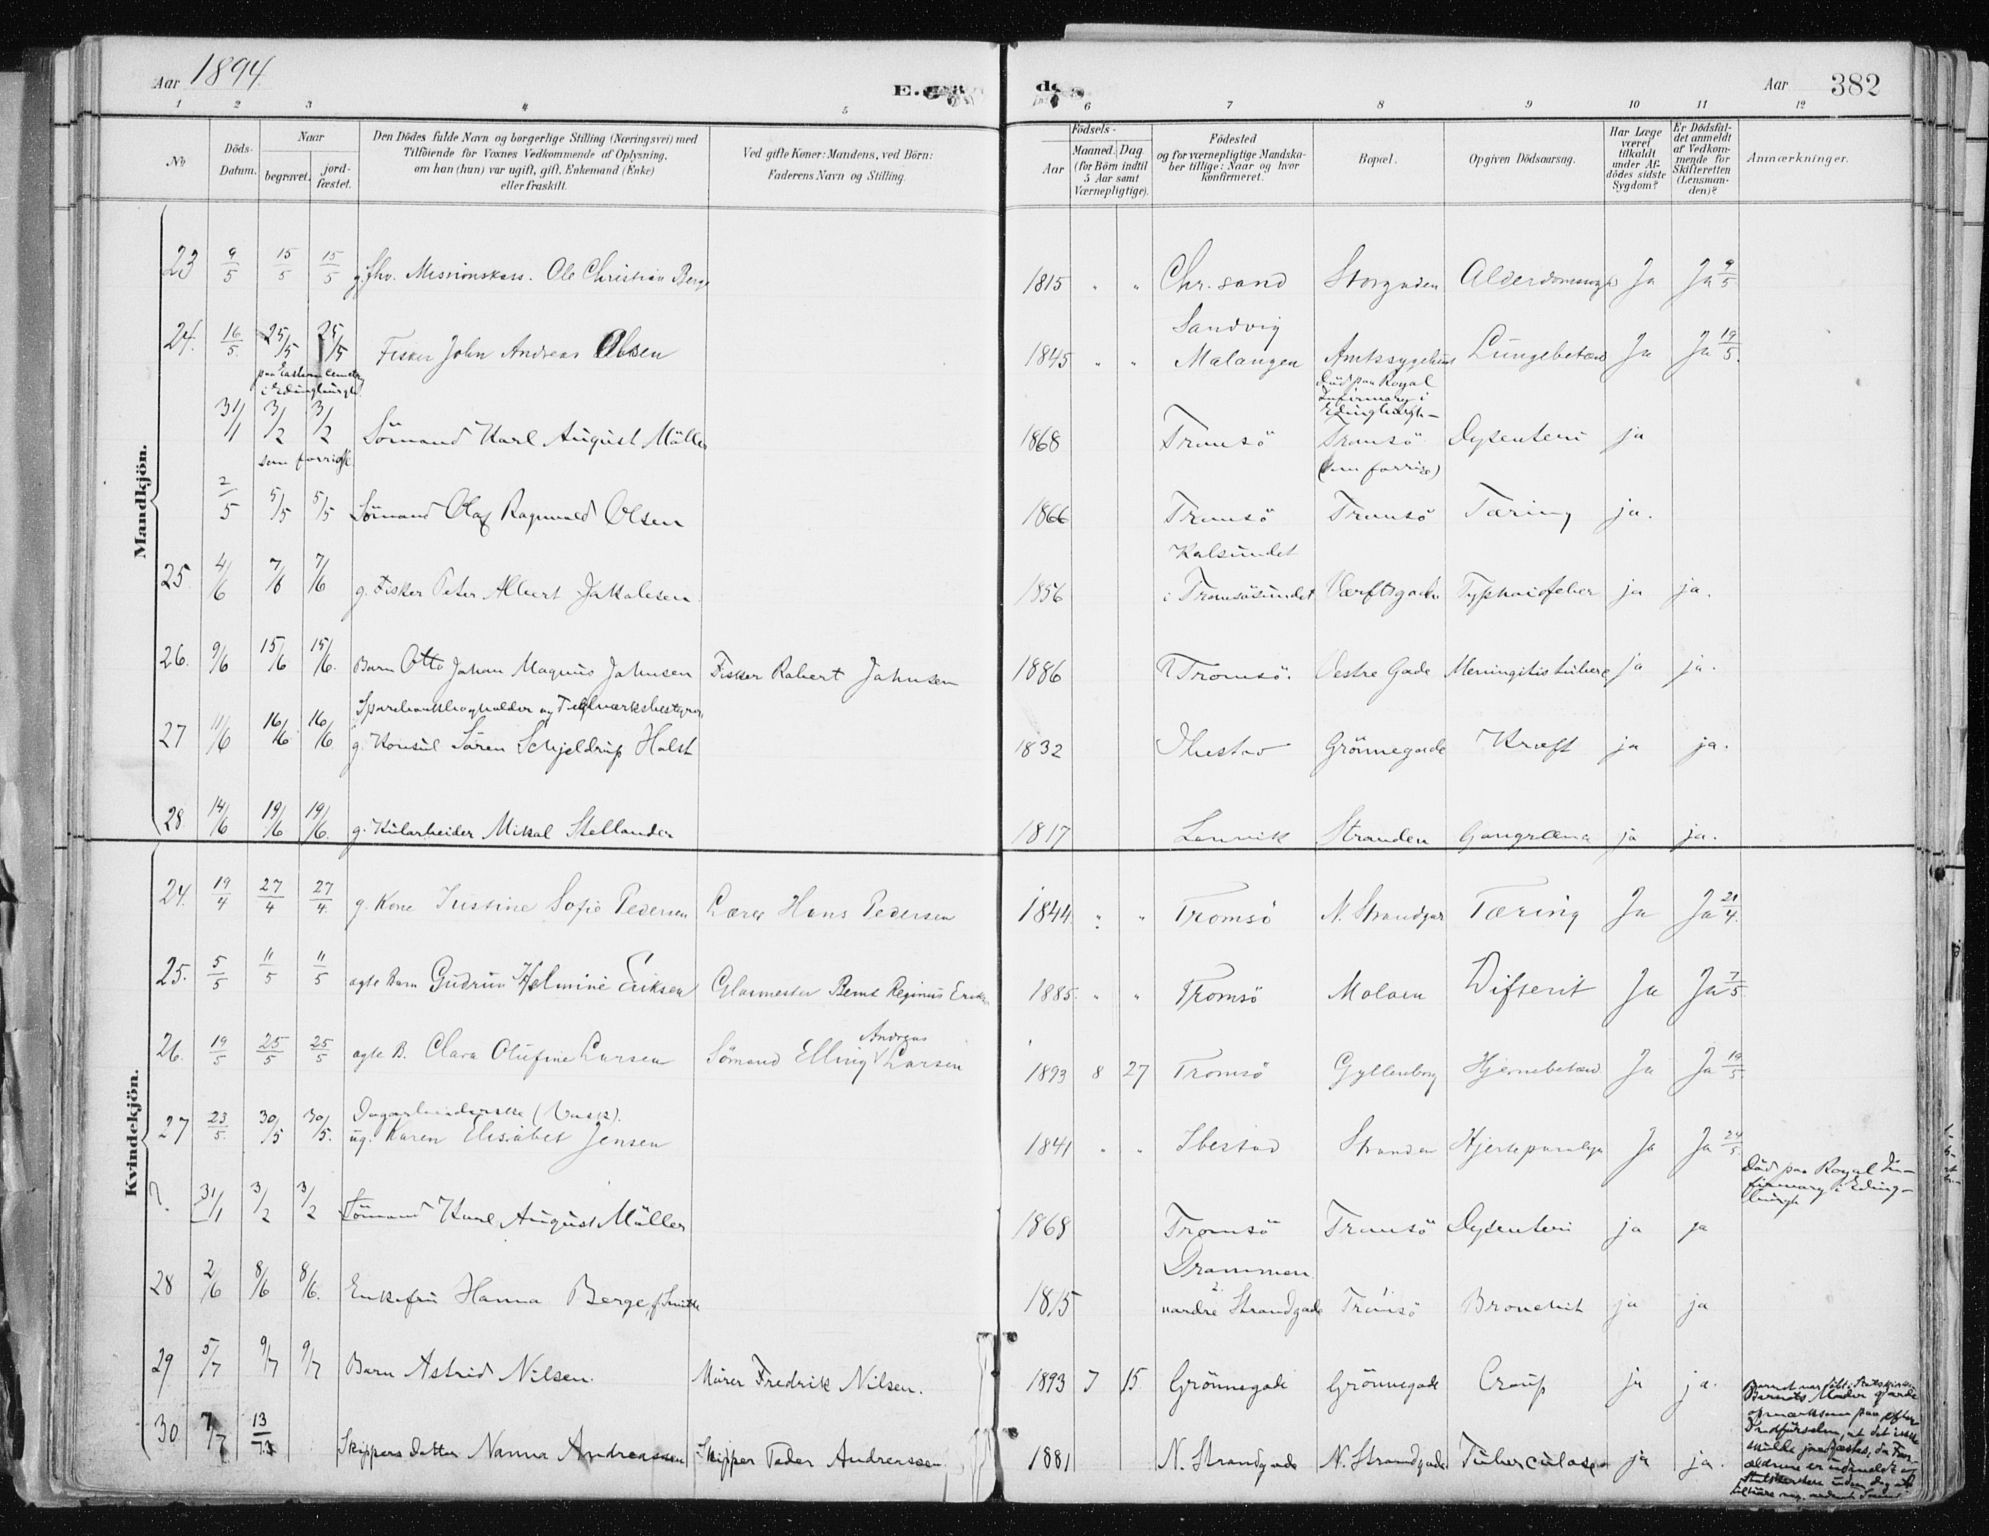 Aar 1894.
Aar 382
1 2 3 4 5 6 7 8 9 10 11 12
No
Döds-Datum.
Naar
begravet. jord-fæstet.
Den Dödes fulde Navn og borgerlige Stilling (Næringsvei) med
Tilföiende for Voxnes Vedkommende af Oplysning,
om han (hun) var ugift, gift, Enkemand (Enke)
eller fraskilt.
Ved gifte Koner: Mandens, ved Börn:
Faderens Navn og Stilling.
Födsels-
Aar Maaned. Dag
(for Börn indtil
5 Aar samt
Værnepligtige).
Födested
og for værnepligtige Mandska-
ber tillige: Naar og hvor
konfirmeret.
Bopæl.
Opgiven Dödsaarsag.
Har Læge
været
tilkaldt
under Af-
dödes sidste
Sygdom?
Er Dödsfal-
det anmeldt
af Vedkom-
mende for
Skifteretten
(Lensman-
den)?
Anmærkninger.
Mandkjön.
23 9/5 15/5 15/5 Missionskass. Ole Christian Berge 1815 " " Chr. sand Storgaden Ja Ja 9/5
24. 16/5. 25/5 25/5 Fisker John Andreas Olsen 1845 " " Sandvig Malangen Amtssygehuset Lungebetæn Ja Ja 19/5.
paa Eastern cemetry
i Edingburgh.
31/1 3/2 3/2 Sömand Karl August Müller 1868 Tromsö Död paa Royal Infirmary i Edingburgh- Tromsö Dysenteri ja
som forrige
2/5 5/5 5/5 Sömand Olaf Ragnvald Olsen 1866 Tromsö (som forrige) Tromsö Tæring ja.
25. 4/6 7/6 7/6 g. Fisker Peter Albert Jakobsen 1856 Kalsundet i Tromsösundet Værftsgaden Typhoidfeber ja ja.
26. 9/6 15/6 15/6. Barn Otto Johan Magnus Johnsen Fisker Robert Johnsen 1886 Tromsö. Vestre Gade Meningitis tuberc ja ja.
27 11/6 16/6. 16/6. g. Konsul Sören Schjeldrup Holst 1832 Ibestad Grönnegade Kræft ja ja.
28 14/6 19/6 19/6. g. Kularbeider Mikal Stellander 1817 Lenvik Stranden Gangræna ja ja.
Kvindekjön.
24. 19/4 27/4 27/4. g. Kone Justine Sofie Pedersen Lærer Hans Pedersen 1844. " " Tromsö N. Strandgad Tæring Ja Ja 21/4.
25. 5/5 11/5 11/5 ægte Barn Gudrun Helmine Eriksen Glarmester Bernt Reginus Erik 1885. " " Tromsö Moloen Difterit Ja Ja 7/5
26. 19/5 25/5 25/5 ægte B. Clara Olufine Larsen Sömand Elling Andreas Larsen 1893 8 27 Tromsö Gyllenborg Hjernebetænd Ja Ja 19/5.
27 23/5. 30/5 30/5. Dagarbeiderske (Vask). ug. Karen Elisabet Jensen 1841 " " Ibestad Stranden Hjerteparalyse Ja Ja 24/5
?. 31/1 3/2 3/2 Sömand Karl August Müller 1868 Tromsö Tromsö Dysenteri ja ja Död paa Royal In-
firmary i Eding-
burgh
28 2/6 8/6 8/6. Enkefru Hanna Berge, f. Smith 1815 Drammen nordre Strandgade Tromsö Bronchit ja ja
29 5/7 9/7 9/7 Barn Astrid Nilsen. Murer Fredrik Nilsen. 1893 7 15 Grönnegade Grönnegade Croup ja ja.
30 7/7 13/7 Skippers datter Nanna Andreassen Skipper Peder Andreassen 1881 N. Strandgade N. Strandgade Tuberculose ja ja.
Barnets Moder gjorde
opmærksom paa efter
at det ikke
skulde jordfæstes, da For-
ældrene er udmeldt af
Statskirken